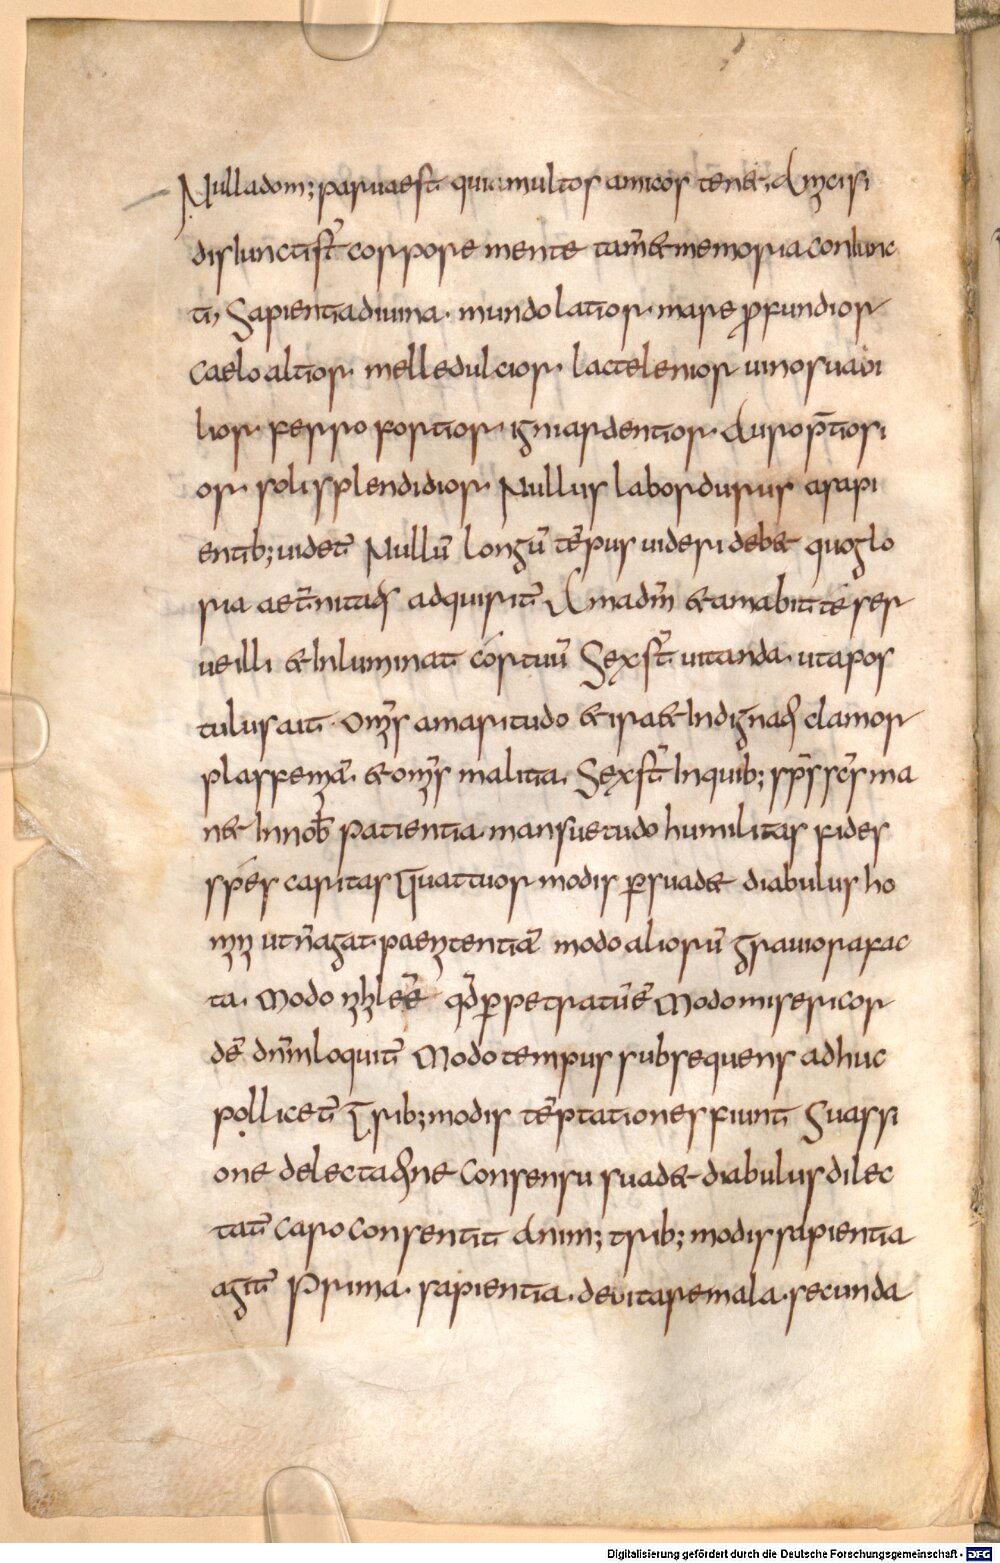 Nulla dom; parua est quia multos amicos tenet, Amici si
disiuncti st̄ corpore mente tam̄ et memoria coniunc
ti, Sapientia diuina · mundo latior · mare ꝓfundior
caelo altior · melle dulcior · lacte lenior uino suaui
lior · ferro fortior · igni ardentior · Auro p̄tiosi
or · soli splendidior · Nullus labor durus a sapi
entib; uidet᷑ Nullū longū tēpus uideri debet quo glo
ria aet᷑nitatis adquirit᷑ Ama dn̄m et amabit te ser
ue illi et inluminat cor tuū Sex st̄ uitanda · ut apos
tulus ait · om̄s amaritudo et ira et indignatio clamor
plasfemia · et om̄s malitia · Sex st̄ in quib; sp̄s sc̄s ma
net in nob̄ patientia · mansuetudo humilitas fides
spes caritas Quattuor modis ꝑsuadet diabulus ho
mini ut n̄ agat paenitentiā modo aliorū grauiora fac
ta · Modo nihil eē qd̄ ꝑpetratū ē Modo misericor
dē dn̄m loquit᷑ Modo tempus subsequens adhuc
pollicet᷑ Trib; modis tēptationes fiunt Suassi
one delectatione consensu suadet diabulus dilec
tat᷑ caro consentit anim; trib; modis sapientia
agit᷑ Prima · sapientia · deuitare mala · secunda
Digitalisierung gefördert durch die Deutsche Forschungsgemeinschaft - DFG